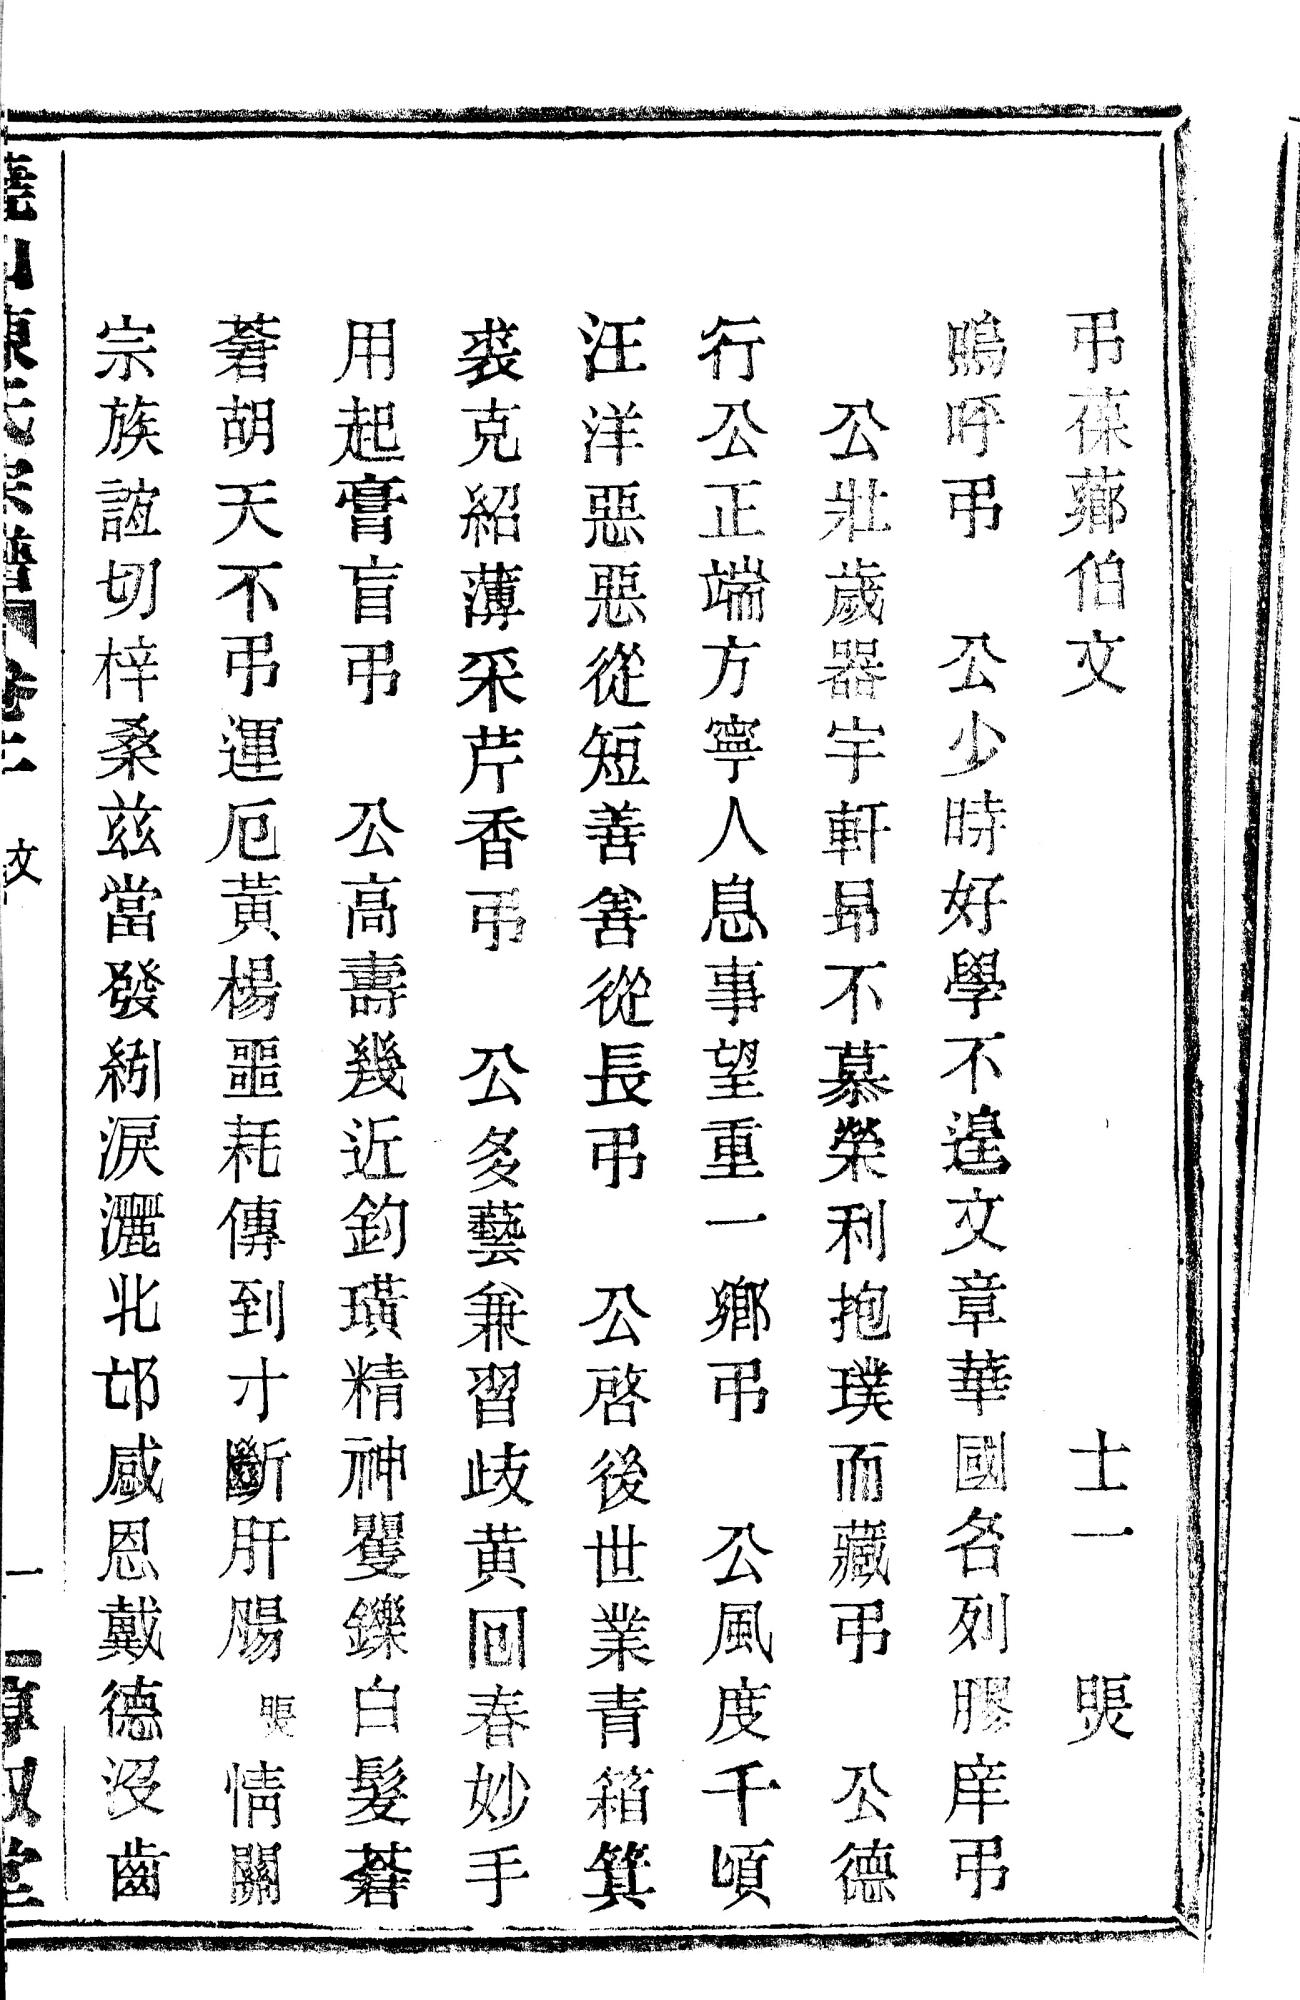 弔葆薌伯文　士一　㬥
嗚呼弔　公少時好學不遑文章華國名列膠庠弔
公壯歲器宇軒昻不慕榮利抱璞而藏弔　公德
行公正端方寧人息事望重一鄉弔　公風度千頃
汪洋惡惡從短善善從長弔　公啓後世業青箱箕
裘克紹薄采芹香弔　公多藝兼習歧黄回春妙手
用起膏肓弔　公高壽幾近釣璜精神矍鑠白髮蒼
蒼胡天不弔運厄黃楊噩耗傳到寸斷肝腸　情關
宗族誼切梓桑兹當發紖淚灑北邙感恩戴德沒齒
陳氏宗譜　卷　文　一　敦堂